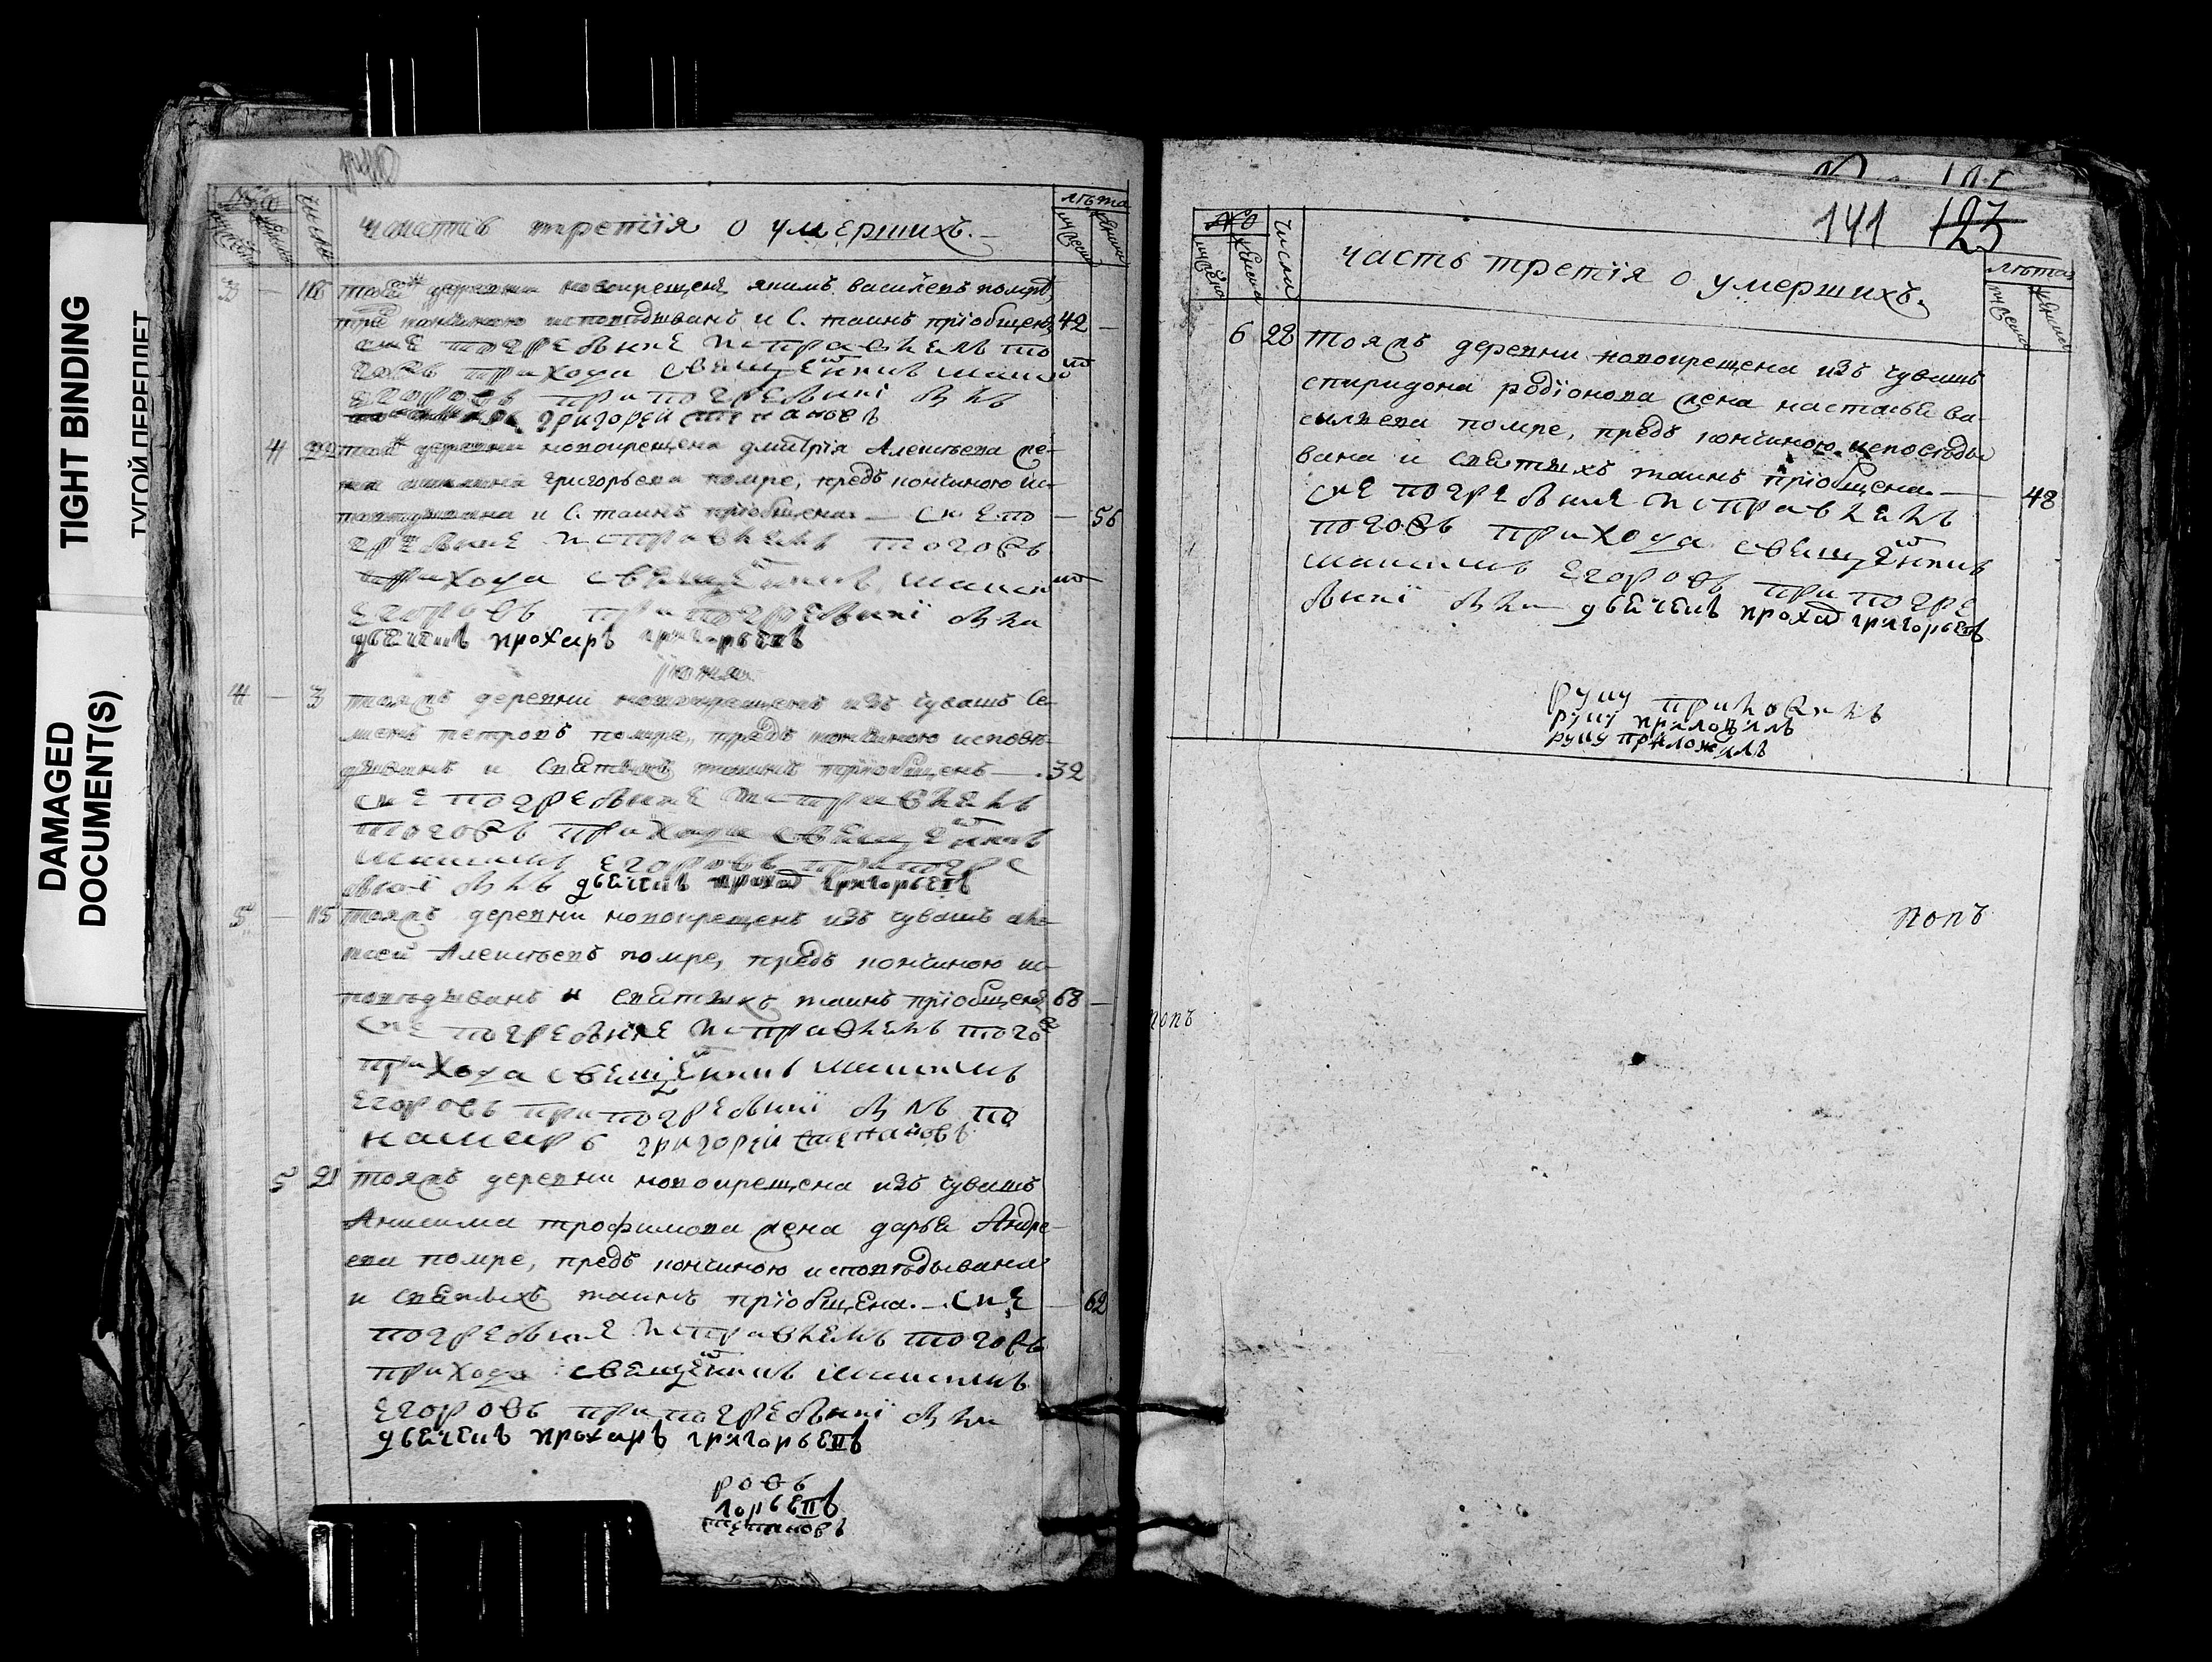 TIGHT BINDING
ТУГОЙ ПЕРЕПЛЕТ
DAMAGED
DOCUMENT(S)
№
числа
лѣта
часть третїя о умершихъ.
3 — 18 тояжъ деревни новокрещенъ якимъ васильевъ помре,
предъ кончиною исповѣдыванъ и С. таинъ прїобщенъ 42 —
сие погребение исправлялъ то
говъ прихода священникъ максимъ
егоровъ при погребениї былъ
пономарь григорей степановъ
4 22 тояжъ деревни новокрещена дмитрїя Алексѣева же-
на григорьева помре, предъ кончиною ис-
повѣдывана и С. таинъ прїобщена — сие по — 56
гребение исправлялъ тоговъ
прихода священникъ максимъ
егоровъ при погребениї былъ
дьячекъ прохоръ григорьевъ
їюня
4 — 3 тояжъ деревни новокрещенъ изъ чувашъ Се-
менъ петровъ помре, предъ кончиною исповѣ-
дыванъ и святыхъ таинъ прїобщенъ — 32
сие погребение исправлялъ
тоговъ прихода священникъ
максимъ егоровъ при погре
бениї былъ дьячекъ прохоръ григорьевъ
5 — 15 тояжъ деревни новокрещенъ изъ чувашъ
Алексѣевъ помре, предъ кончиною ис-
повѣдыванъ и святыхъ таинъ прїобщенъ 68 —
сие погребение исправлялъ тоговъ
прихода священникъ максимъ
егоровъ при погребениї былъ по
намарь григорїй степановъ
5 21 тояжъ деревни новокрещена изъ чувашъ
Анисима трофимова жена дарья Андре-
ева помре, предъ кончиною исповѣдывана
и святыхъ таинъ прїобщена. — сие — 62
погребение исправлялъ тоговъ
прихода священникъ максимъ
егоровъ при погребениї былъ
дьячекъ прохаръ григорьевъ
ровъ
горьевъ
степановъ
141 123
числа
лѣта
часть третїя о умершихъ.
6 28 тояжъ деревни новокрещена изъ чувашъ
спиридона родїонова жена настасья ва-
сильева помре, предъ кончиною исповѣды
вана и святыхъ таинъ прїобщена. — 48
сие погребение исправлялъ
тоговъ прихода священникъ
максимъ егоровъ при погре
бениї былъ дьячекъ прохоръ григорьевъ
руку приложилъ
руку приложилъ
руку приложилъ
попъ
попъ